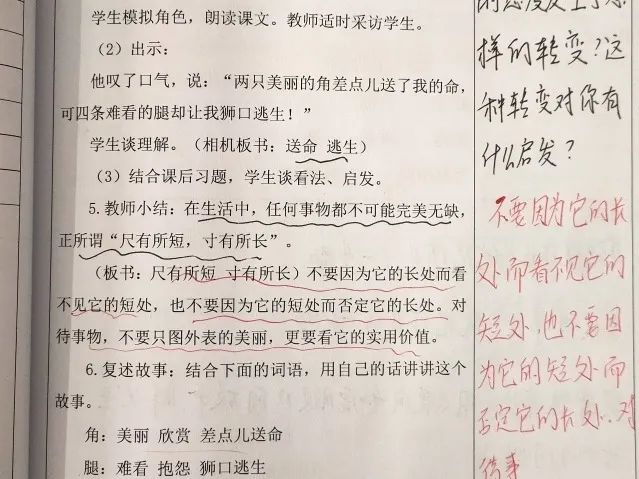 学生模拟角色，朗读课文。教师适时采访学生。
（2）出示：
他叹了口气，说：“两只美丽的角差点儿送了我的命，
可四条难看的腿却让我狮口逃生！”
学生谈理解。（相机板书：送命 逃生）
（3）结合课后习题，学生谈看法、启发。
5.教师小结：在生活中，任何事物都不可能完美无缺，
正所谓“尺有所短，寸有所长”。
（板书：尺有所短 寸有所长）不要因为它的长处而看
不见它的短处，也不要因为它的短处而否定它的长处。对
待事物，不要只图外表的美丽，更要看它的实用价值。
6.复述故事：结合下面的词语，用自己的话讲讲这个
故事。
角：美丽 欣赏 差点儿送命
腿：难看 抱怨 狮口逃生
样的转变？这
种转变对你有
什么启发？
不要因为它的长
处而看不见它的
短处，也不要因
为它的短处而
否定它的长处。对
待事